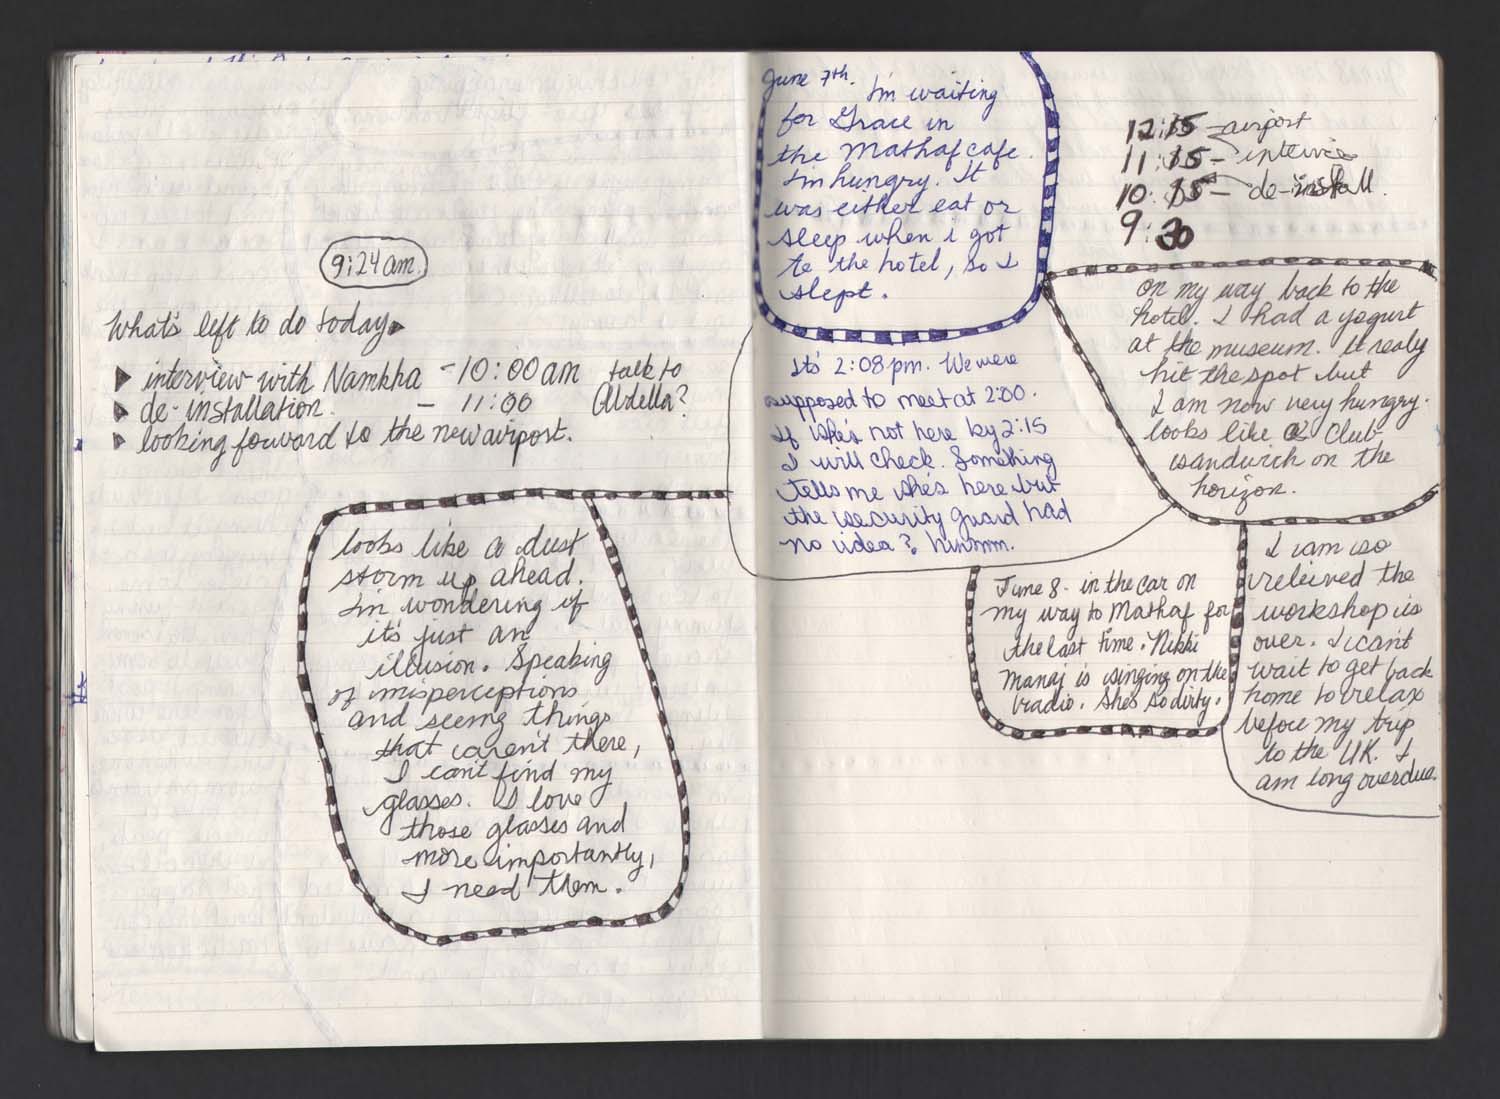 9:24 am.
What's left to do today
interview with Namkha - 10:00 am
talk to
Abdella?
de-installation. - 11:00
looking forward to the new airport.
looks like a dust
storm up ahead.
I'm wondering if
it's just an
illusion. Speaking
of misperceptions
and seeing things
that aren't there,
I can't find my
glasses. I love
those glasses and
more importantly,
I need them.
June 7th. I'm waiting
for Grace in
the Mathaf cafe.
I'm hungry. It
was either eat or
sleep when i got
to the hotel, so I
slept.
It's 2:08 pm. We were
supposed to meet at 2:00.
If she's not here by 2:15
I will check. Something
tells me she's here but
the security guard had
no idea? hmmm.
12:15 - airport
11:15 - intervie
10:15 - de-install.
9:30
on my way back to the
hotel. I had a yogurt
at the museum. It realy
hit the spot but
I am now very hungry.
looks like a Club
sandwich on the
horizon.
June 8 - in the car on
my way to Mathaf for
the last time. Nikki
Manaj is singing on the
radio. She's so dirty.
I am so
releived the
workshop is
over. I can't
wait to get back
home to relax
before my trip
to the UK. I
am long overdue.